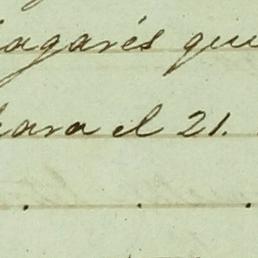 pagarés que
para el 21.
. . .